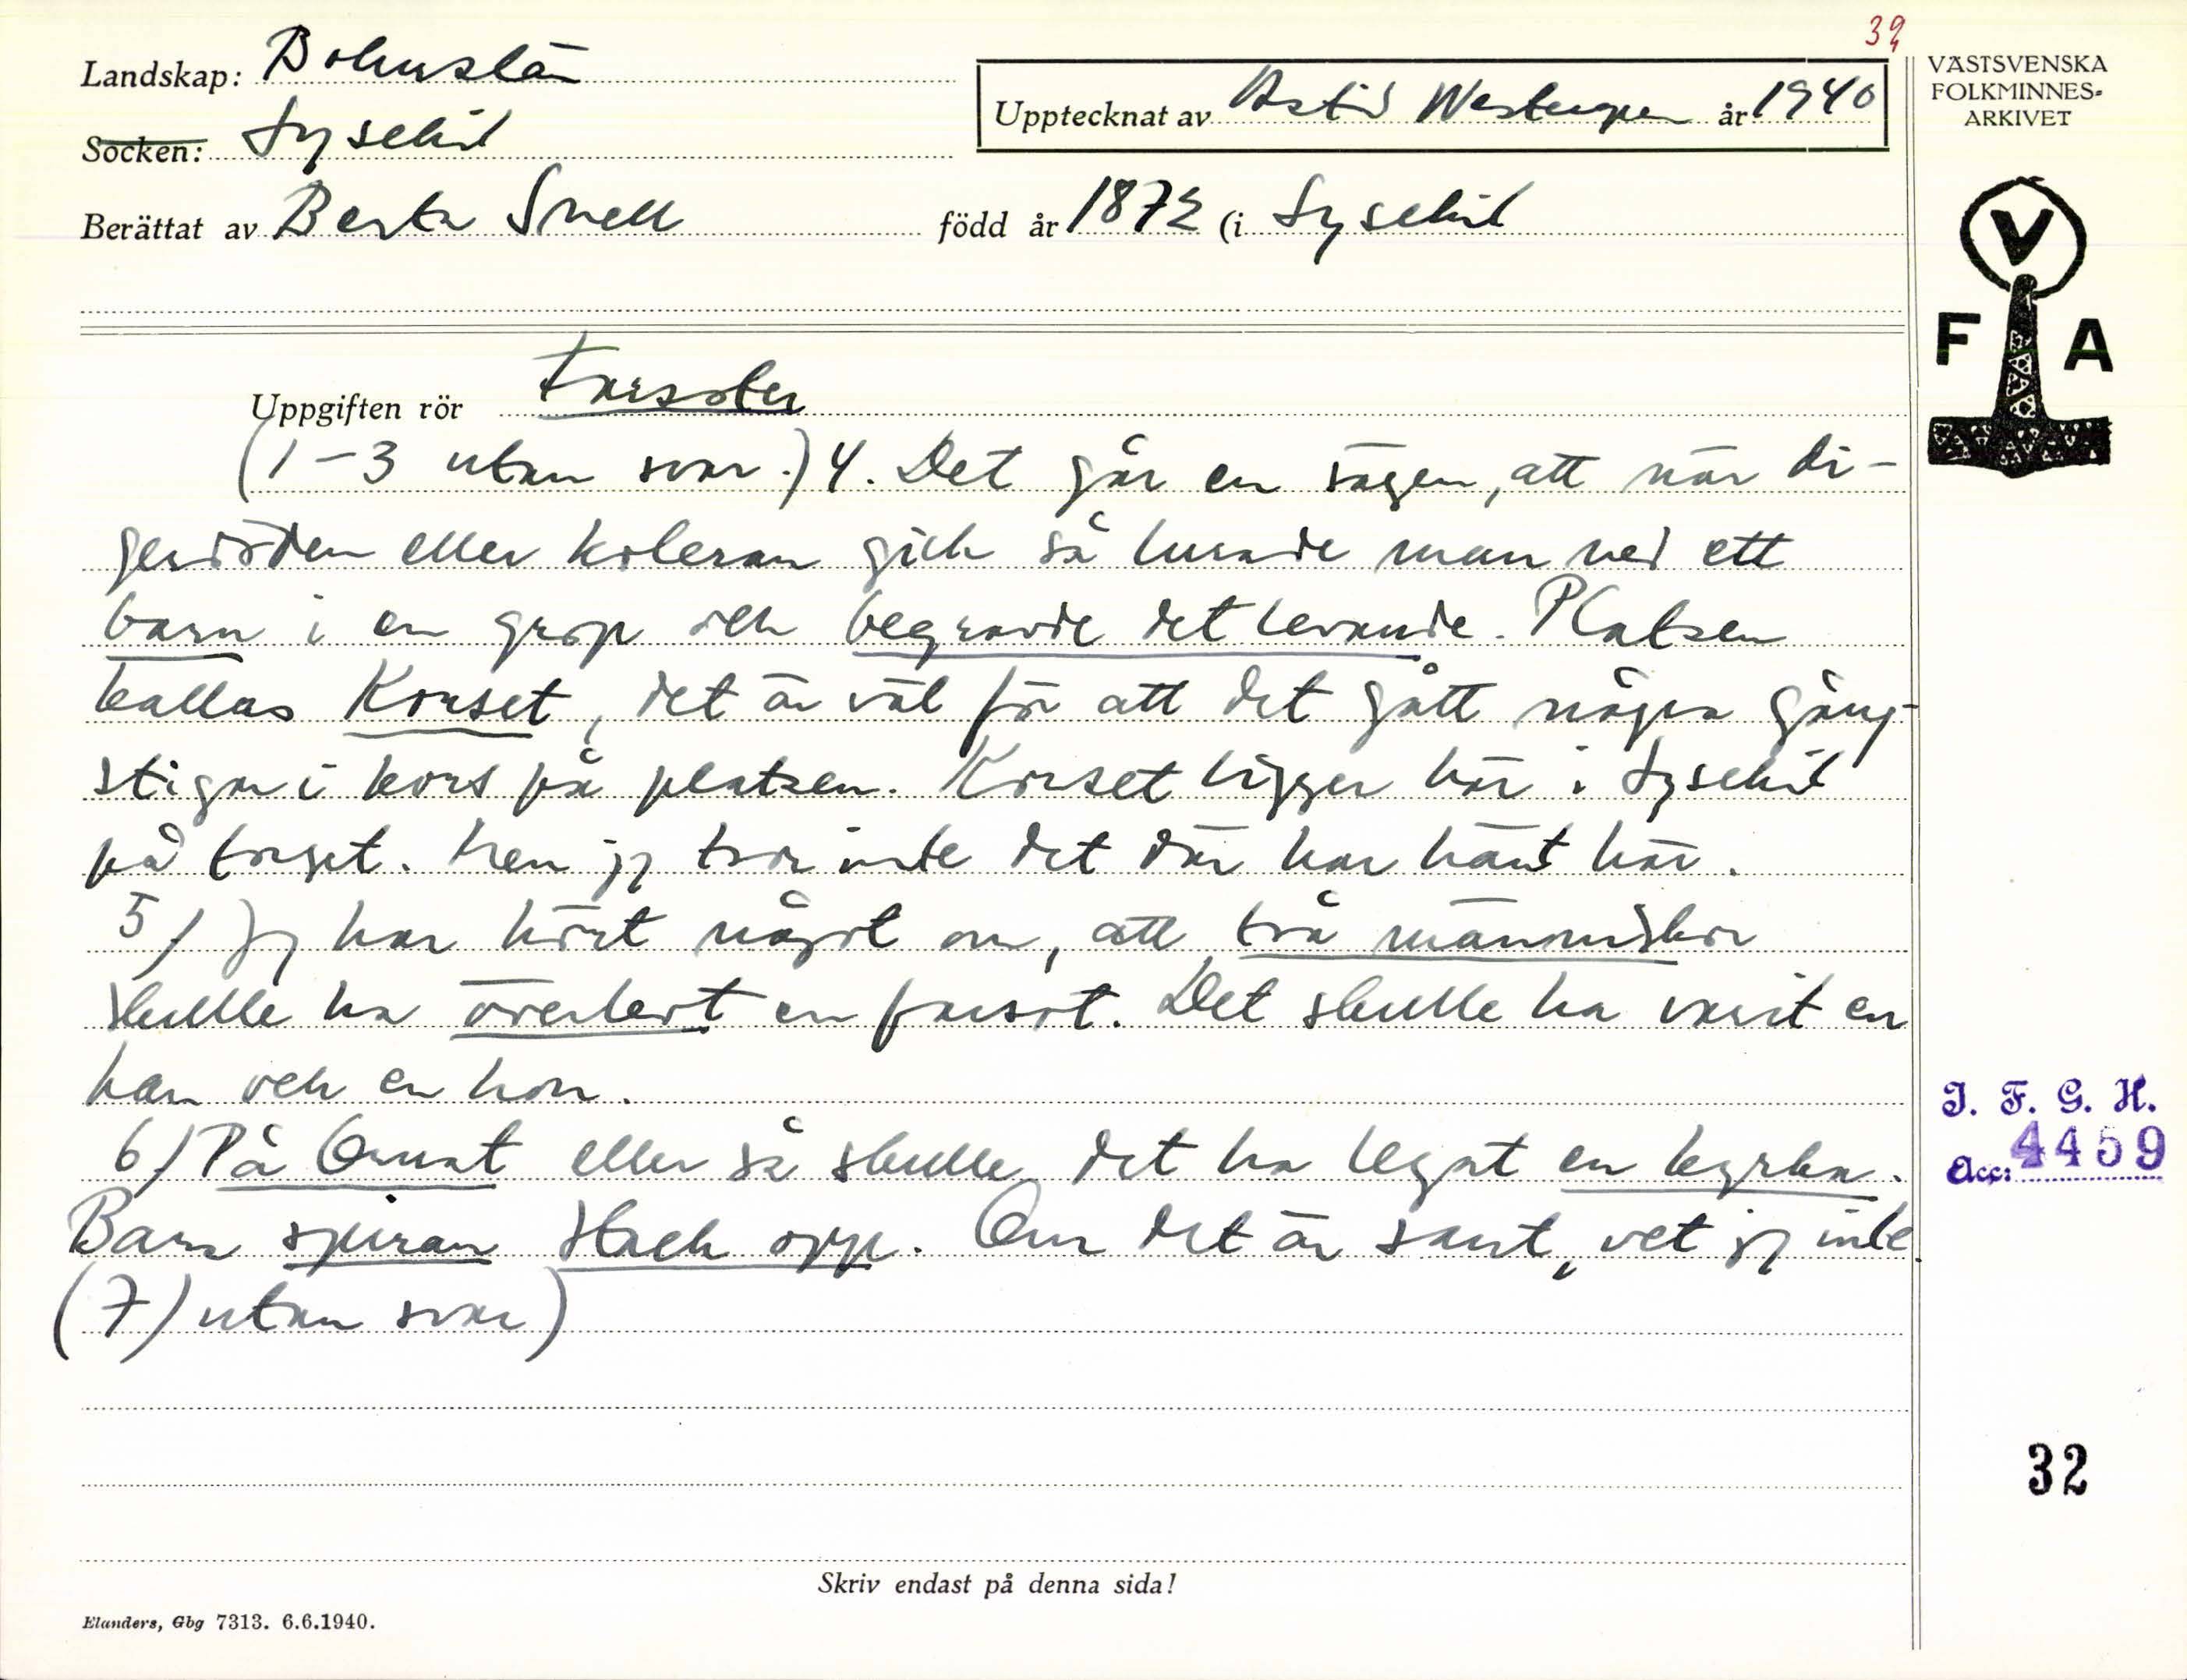 39
Landskap: Bohuslän
Socken: Lysekil
Upptecknat av Astrid Westergren år 1940
Berättat av Berta Snell född år 1872 (i Lysekil
VÄSTSVENSKA
FOLKMINNES-
ARKIVET
V
F A
Uppgiften rör Farsoter
(1-3 utan svar.) 4. Det går en sägen, att när di-
gerdöden eller koleran gick så lurade man ned ett
barn i en grop och begravde det levande. Platsen
kallas Korset, det är väl för att det gått några gång-
stigar i kors på platsen. Korset ligger här i Lysekil
på torget. Men jg tror inte det där har hänt här.
5/ Jg har hört något om, att två människor
skulle ha överlevt en farsot. Det skulle ha varit en
han och en hon.
6/ På Ornut eller så skulle det ha legat en kyrka.
Bara spiran stack opp. Om det är sant, vet jg inte.
(7/ utan svar)
I. F. G. H.
Acc: 4459
32
Skriv endast på denna sida!
Elanders, Gbg 7313. 6.6.1940.